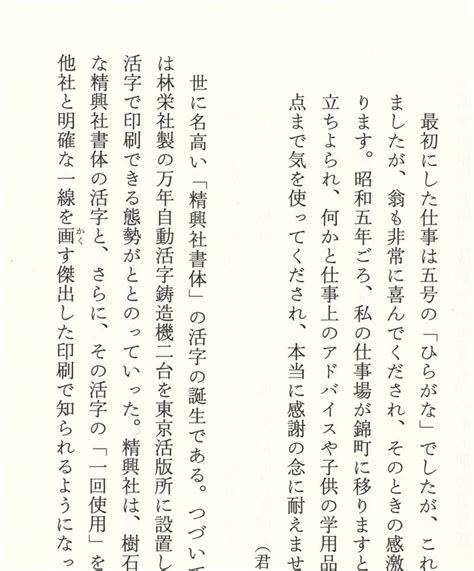 最初にした仕事は五号の「ひらがな」でしたが、これ
ましたが、翁も非常に喜んでくだされ、そのときの感激
ります。昭和五年ごろ、私の仕事場が錦町に移りますと
立ちよられ、何かと仕事上のアドバイスや子供の学用品
点まで気を使ってくだされ、本当に感謝の念に耐えませ
（君
世に名高い「精興社書体」の活字の誕生である。つづいて
は林栄社製の万年自動活字鋳造機二台を東京活版所に設置し
活字で印刷できる態勢がととのっていった。精興社は、樹石
な精興社書体の活字と、さらに、その活字の「一回使用」を
他社と明確な一線を画す傑出した印刷で知られるようになっ
かく